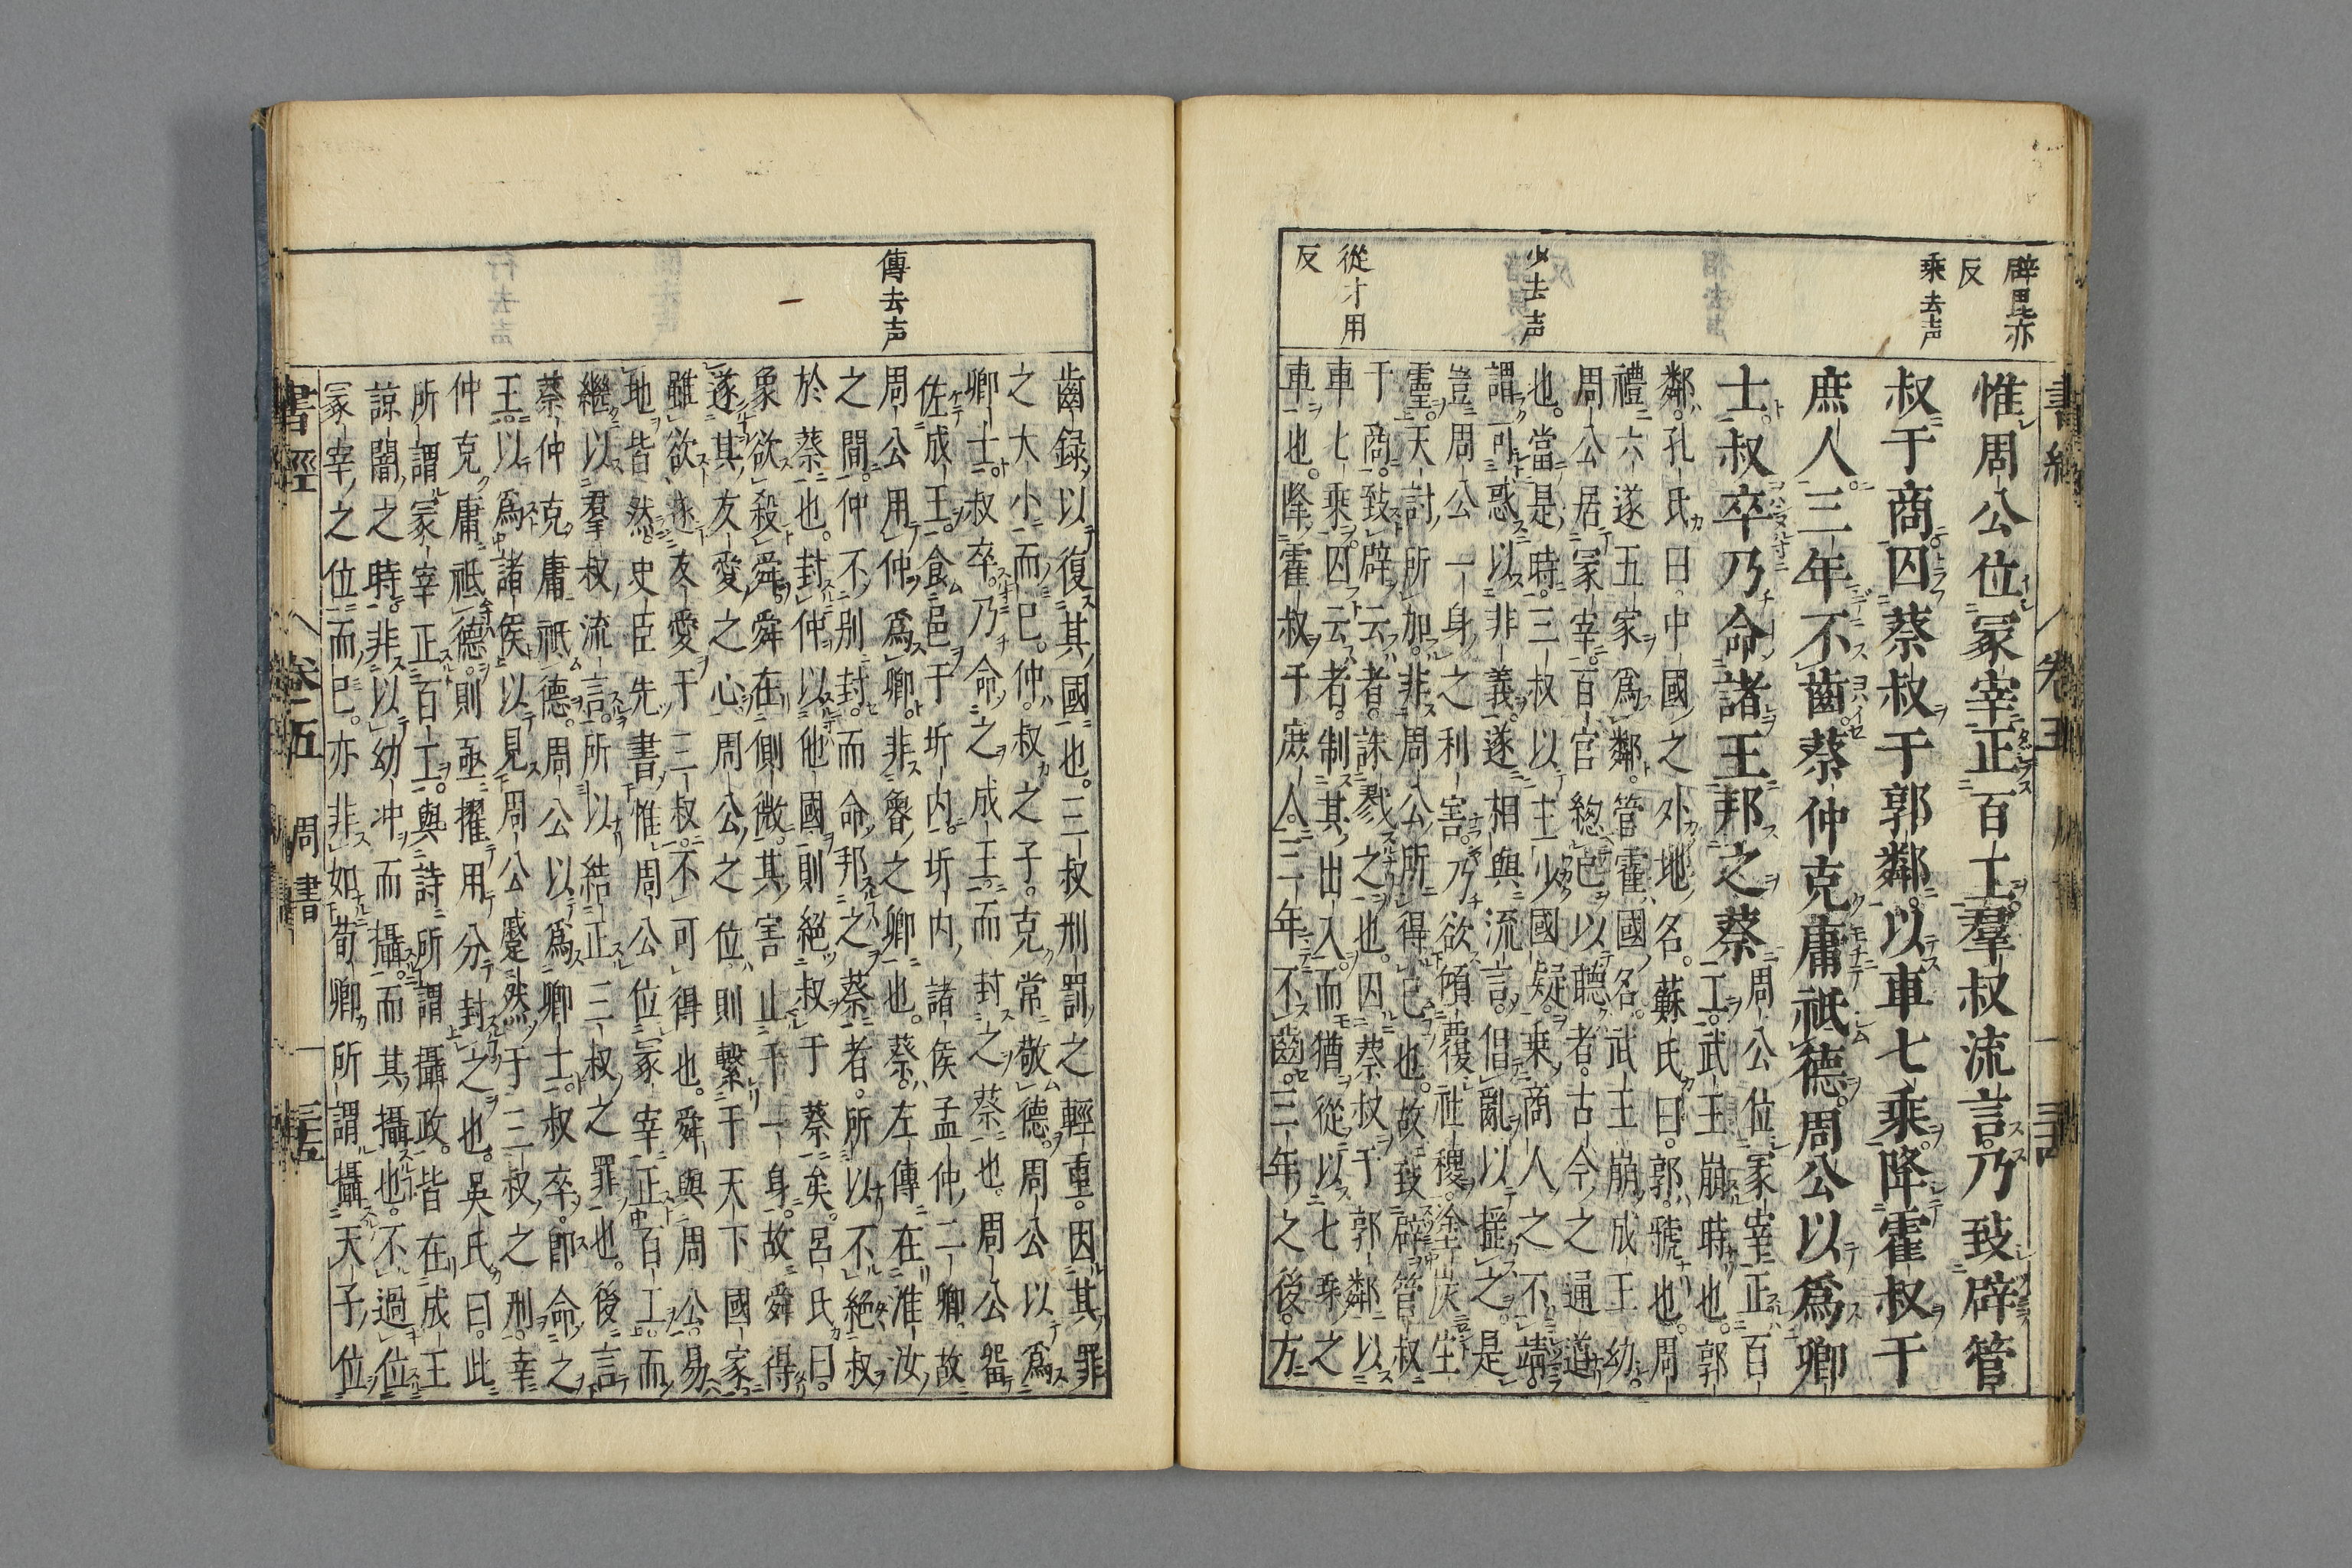 辟毘亦
反
乘去声
少去声
從才用
反
惟周公位冢宰正百工羣叔流言乃致辟管
叔于商囚蔡叔于郭鄰以車七乘降霍叔于
庶人三年不齒蔡仲克庸祗德周公以爲卿
士叔卒乃命諸王邦之蔡
周公位冢宰正百
工武王崩時也郭
鄰孔氏曰中國之外地名蘇氏曰郭虢也周
禮六遂五家爲鄰管霍國名武王崩成王幼
周公居冢宰百官總已以聽者古今之通道
也當是時三叔以主少國疑乘商人之不靖
謂可惑以非義遂相與流言倡亂以搖之是
豈周公一身之利害乃欲傾覆社稷塗炭生
靈天討所加非周公所得已也故致辟管叔
于商致辟云者誅戮之也囚蔡叔于郭鄰以
車七乘囚云者制其出入而猶從以七乘之
車也降霍叔于庶人三年不齒三年之後方
傳去声
齒録以復其國也三叔刑罰之輕重因其罪
之大小而已仲叔之子克常敬德周公以爲
卿士叔卒乃命之成王而封之蔡也周公留
佐成王食邑于圻内圻内諸侯孟仲二卿故
周公用仲爲卿非魯之卿也蔡左傳在淮汝
之間仲不別封而命邦之蔡者所以不絶叔
於蔡也封仲以他國則絶叔于蔡矣呂氏曰
象欲殺舜舜在側微其害止于一身故舜得
遂其友愛之心周公之位則繫于天下國家
雖欲遂友愛于三叔不可得也舜與周公易
地皆然史臣先書惟周公位冢宰正百工而
繼以羣叔流言所以結正三叔之罪也後言
蔡仲克庸祗德周公以爲卿士叔卒即命之
王以爲諸侯以見周公蹙然于三叔之刑幸
仲克庸祗德則亟擢用分封之也吳氏曰此
所謂冢宰正百工與詩所謂攝政皆在成王
諒闇之時非以幼冲而攝而其攝也不過位
冢宰之位而已亦非如荀卿所謂攝天子位
書經 卷五 周書